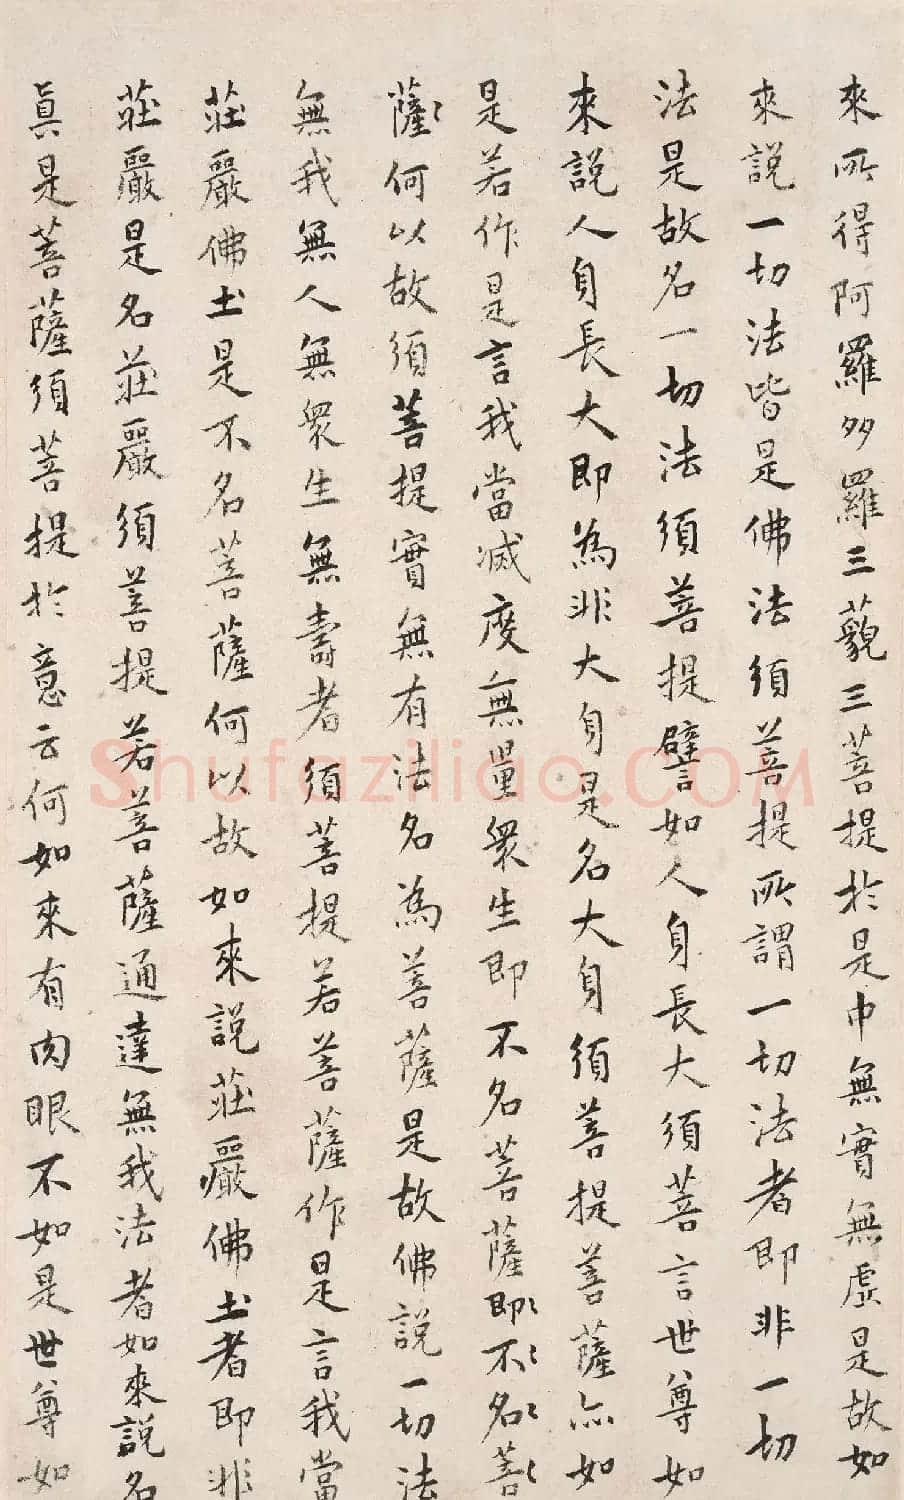 來所得阿羅多羅三藐三菩提於是中無實無虛是故如
來說一切法皆是佛法須菩提所謂一切法者即非一切
法是故名一切法須菩提譬如人身長大須菩言世尊如
來說人身長大即為非大身是名大身須菩提菩薩亦如
是若作是言我當滅度無量眾生即不名菩薩即不名菩
薩何以故須菩提實無有法名為菩薩是故佛說一切法
無我無人無眾生無壽者須菩提若菩薩作是言我當
莊嚴佛土是不名菩薩何以故如來說莊嚴佛土者即非
莊嚴是名莊嚴須菩提若菩薩通達無我法者如來說名
真是菩薩須菩提於意云何如來有肉眼不如是世尊如
Shufaziliao.COM